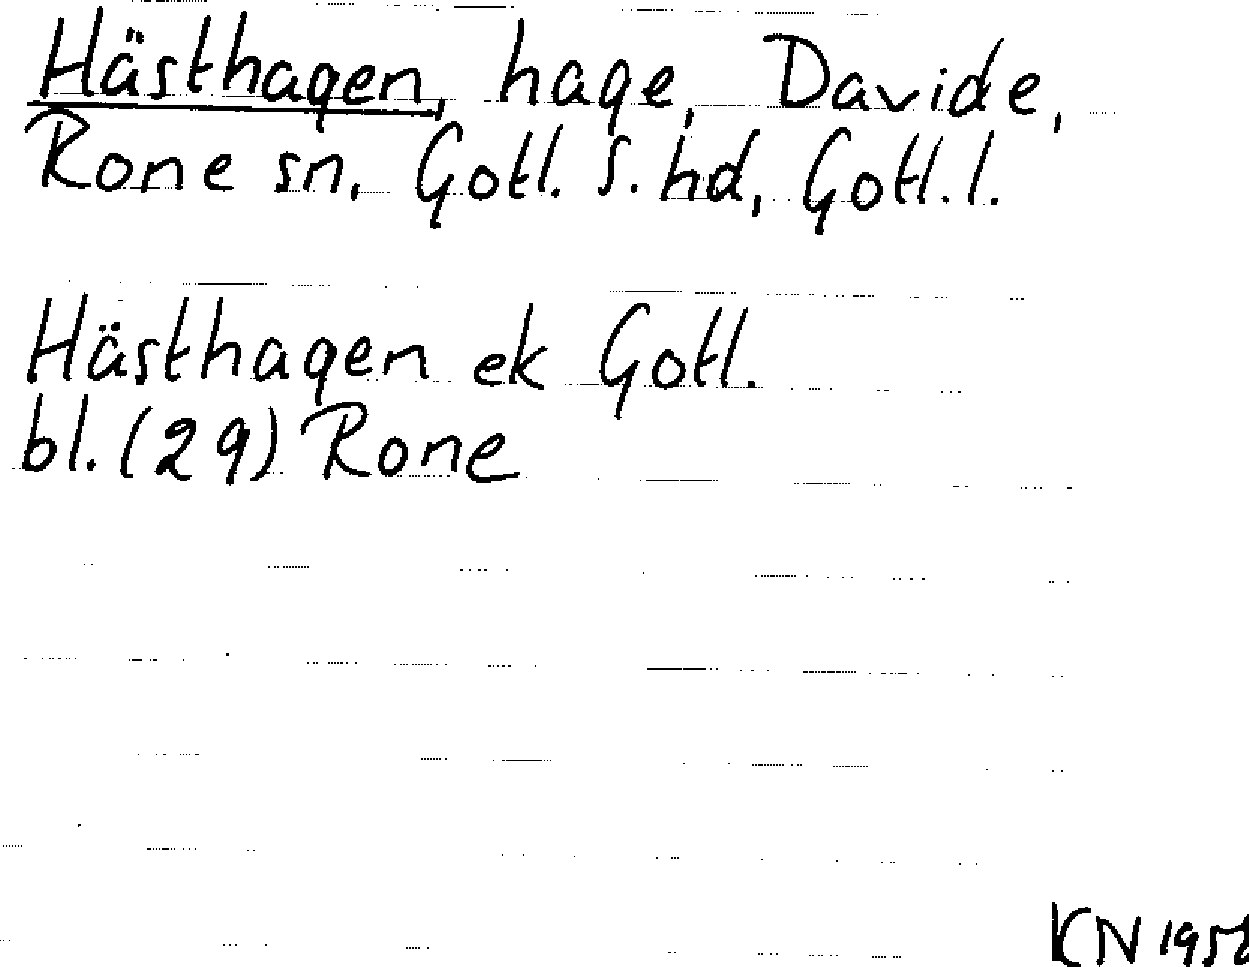 Hästhagen, hage, Davide,
Rone sn, Gotl. S. hd, Gotl. l.
Hästhagen ek Gotl.
bl. (29) Rone
KN